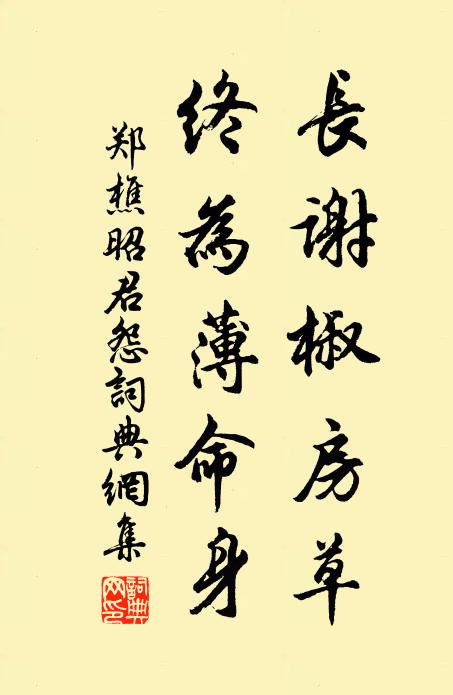 長謝椒房草
終為薄命身
郑樵昭君怨詞典網集
詞典网印